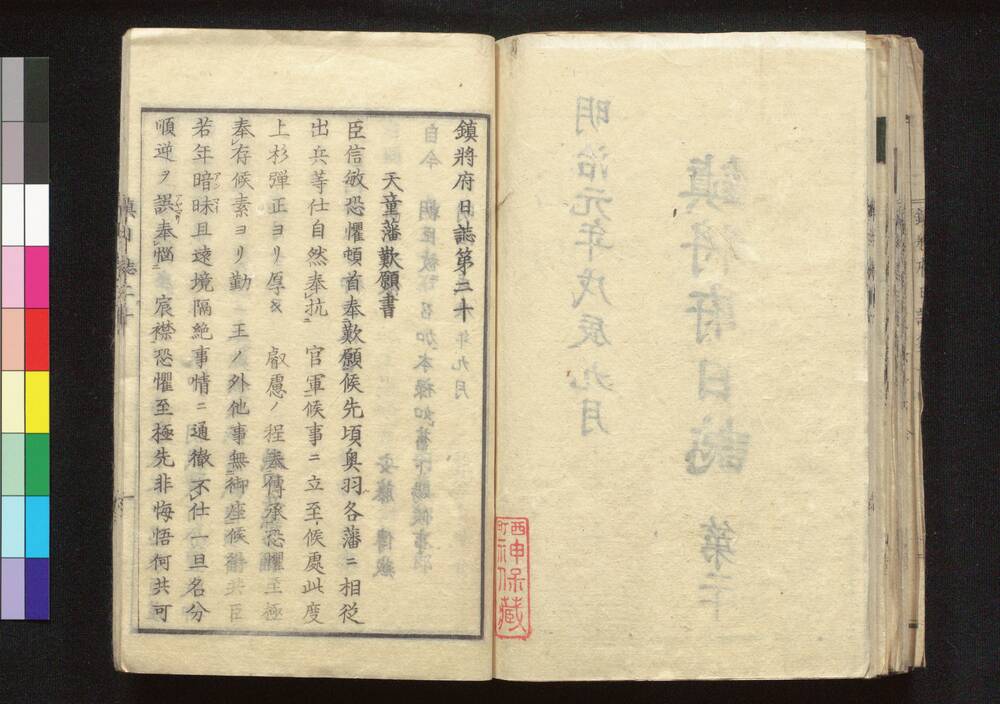 鎮將府日誌第二十
天童藩歎願書
臣信敏恐懼頓首奉歎願候先頃奥羽各藩ニ相從
出兵等仕自然奉抗　官軍候事ニ立至候處此度
上杉彈正ヨリ厚キ　叡慮ノ程奉傳承恐懼至極
奉存候素ヨリ勤　王ノ外他事無御座候得共臣
若年暗昧且遠境隔絶事情ニ通徹不仕一旦名分
順逆ヲ誤奉惱　宸襟恐懼至極先非悔悟何共可
明治元年戊辰九月
鎮將府日誌　第二十
西
町
神保藏